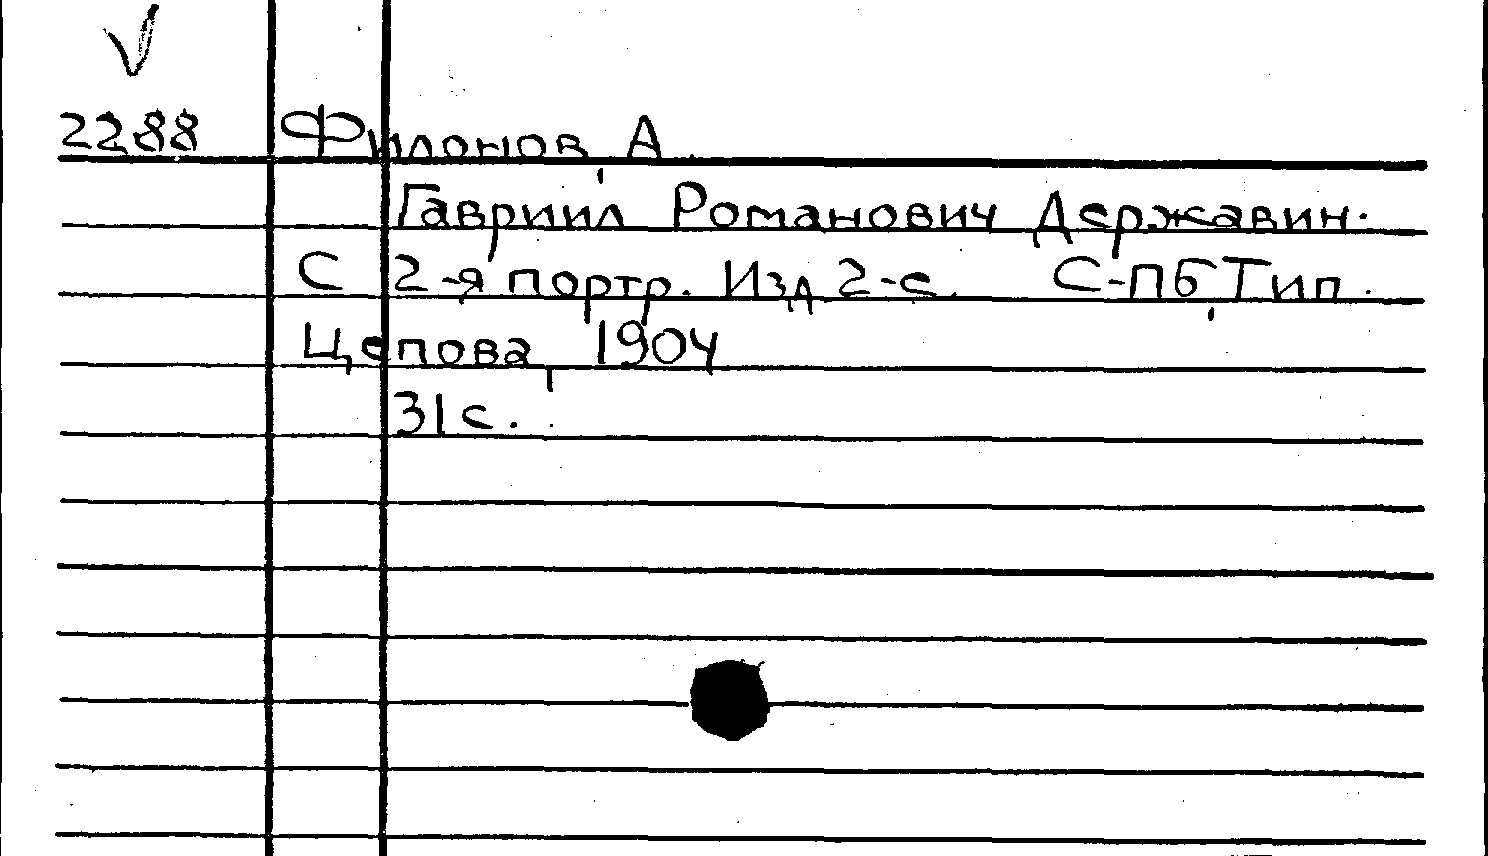 2288 Филонов, А.
Гавриил Романович Державин.
С 2-я портр. Изд 2-е. С-ПБ, Тип.
Цепова, 1904
31 с.